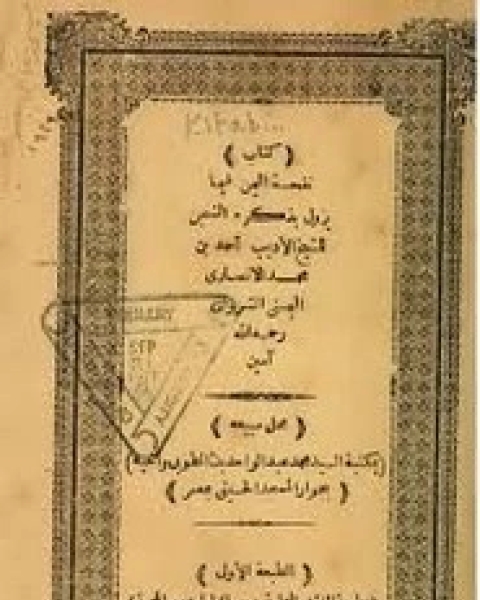 Kitab
﴿ كتاب ﴾
نفحة اليمن فيما
يزول بذكره الشجن
للشيخ الأديب أحمد بن
محمد الانصارى
اليمنى الشروانى
رحمه الله
آمين
﴿ محل مبيعه ﴾
(بمكتبة السيد محمد عبد الواحد بك الطوبى وأخيه)
﴿ بجوار المسجد الحسينى بمصر ﴾
﴿ الطبعة الأولى ﴾